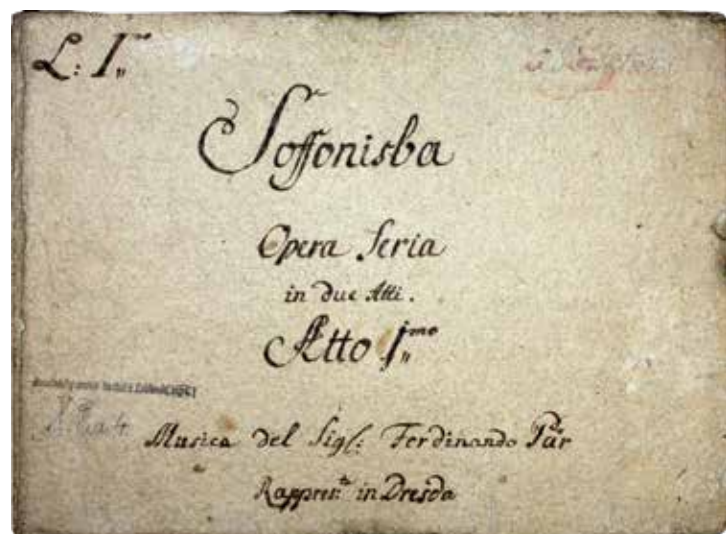 L: I„
Soffonisba
Opera Seria
in due Atti.
Atto I„mo
Musica del Sigl: Ferdinando Pär
Rappres:ta in Dresda